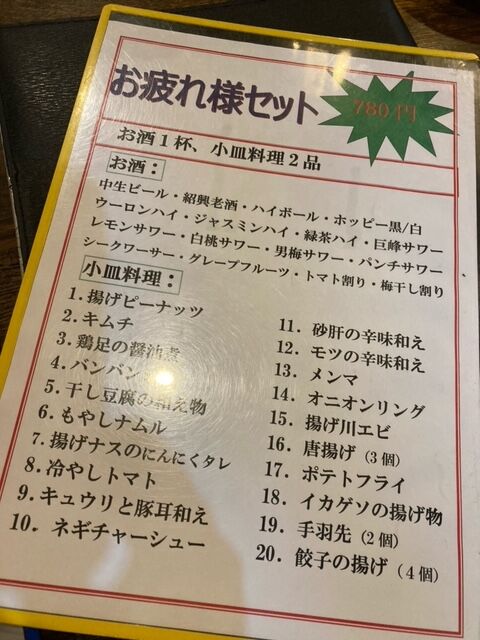 お疲れ様セット
780円
お酒1杯、小皿料理2品
お酒：
中生ビール・紹興老酒・ハイボール・ホッピー黒/白
ウーロンハイ・ジャスミンハイ・緑茶ハイ・巨峰サワー
レモンサワー・白桃サワー・男梅サワー・パンチサワー
シークワーサー・グレープフルーツ・トマト割り・梅干し割り
小皿料理：
1. 揚げピーナッツ
2. キムチ
3. 鶏足の醤油煮
4. バンバン
5. 干し豆腐の和え物
6. もやしナムル
7. 揚げナスのにんにくタレ
8. 冷やしトマト
9. キュウリと豚耳和え
10. ネギチャーシュー
11. 砂肝の辛味和え
12. モツの辛味和え
13. メンマ
14. オニオンリング
15. 揚げ川エビ
16. 唐揚げ（3個）
17. ポテトフライ
18. イカゲソの揚げ物
19. 手羽先（2個）
20. 餃子の揚げ（4個）